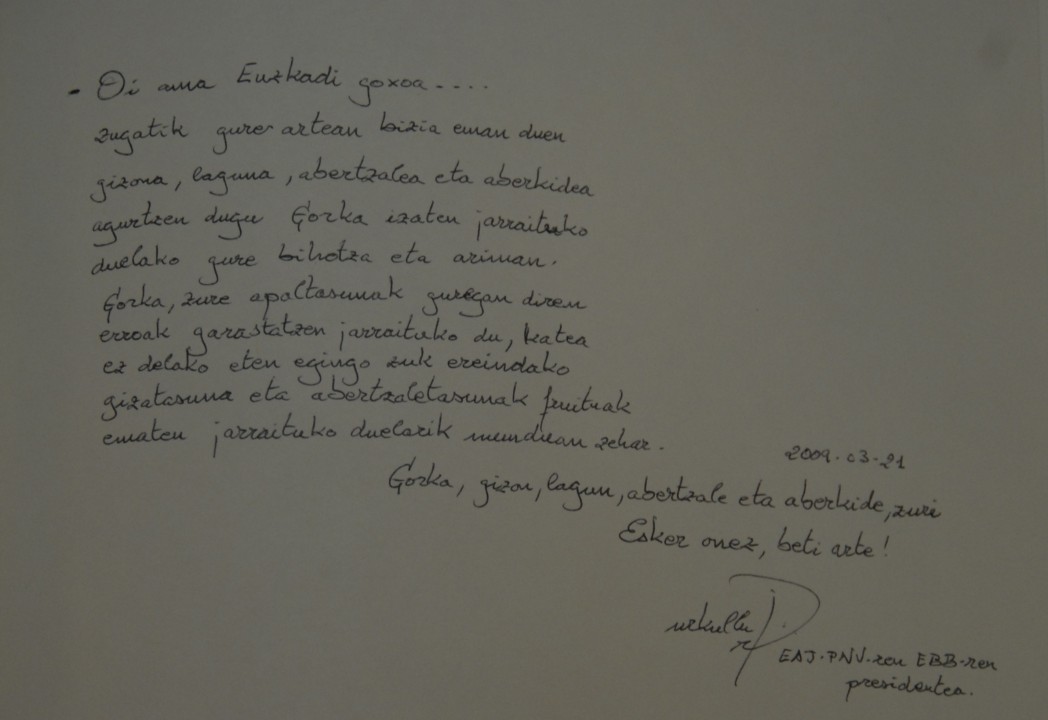 - Oi ama Euzkadi goxoa....
zugatik gure artean bizia eman duen
gizona, laguna, abertzalea eta aberkidea
agurtzen dugu Gorka izaten jarraituko
duelako gure bihotza eta ariman.
Gorka, zure apaltasunak guregan diren
erroak garastatzen jarraituko du, katea
ez delako eten egingo zuk ereindako
gizatasuna eta abertzaletasunak fruituak
ematen jarraituko duelarik munduan zehar.
2009.03-21
Gorka, gizon, lagun, abertzale eta aberkide, zuri
Esker onez, beti arte!
urkullu
EAJ-PNV-ren EBB-ren
presidentea.